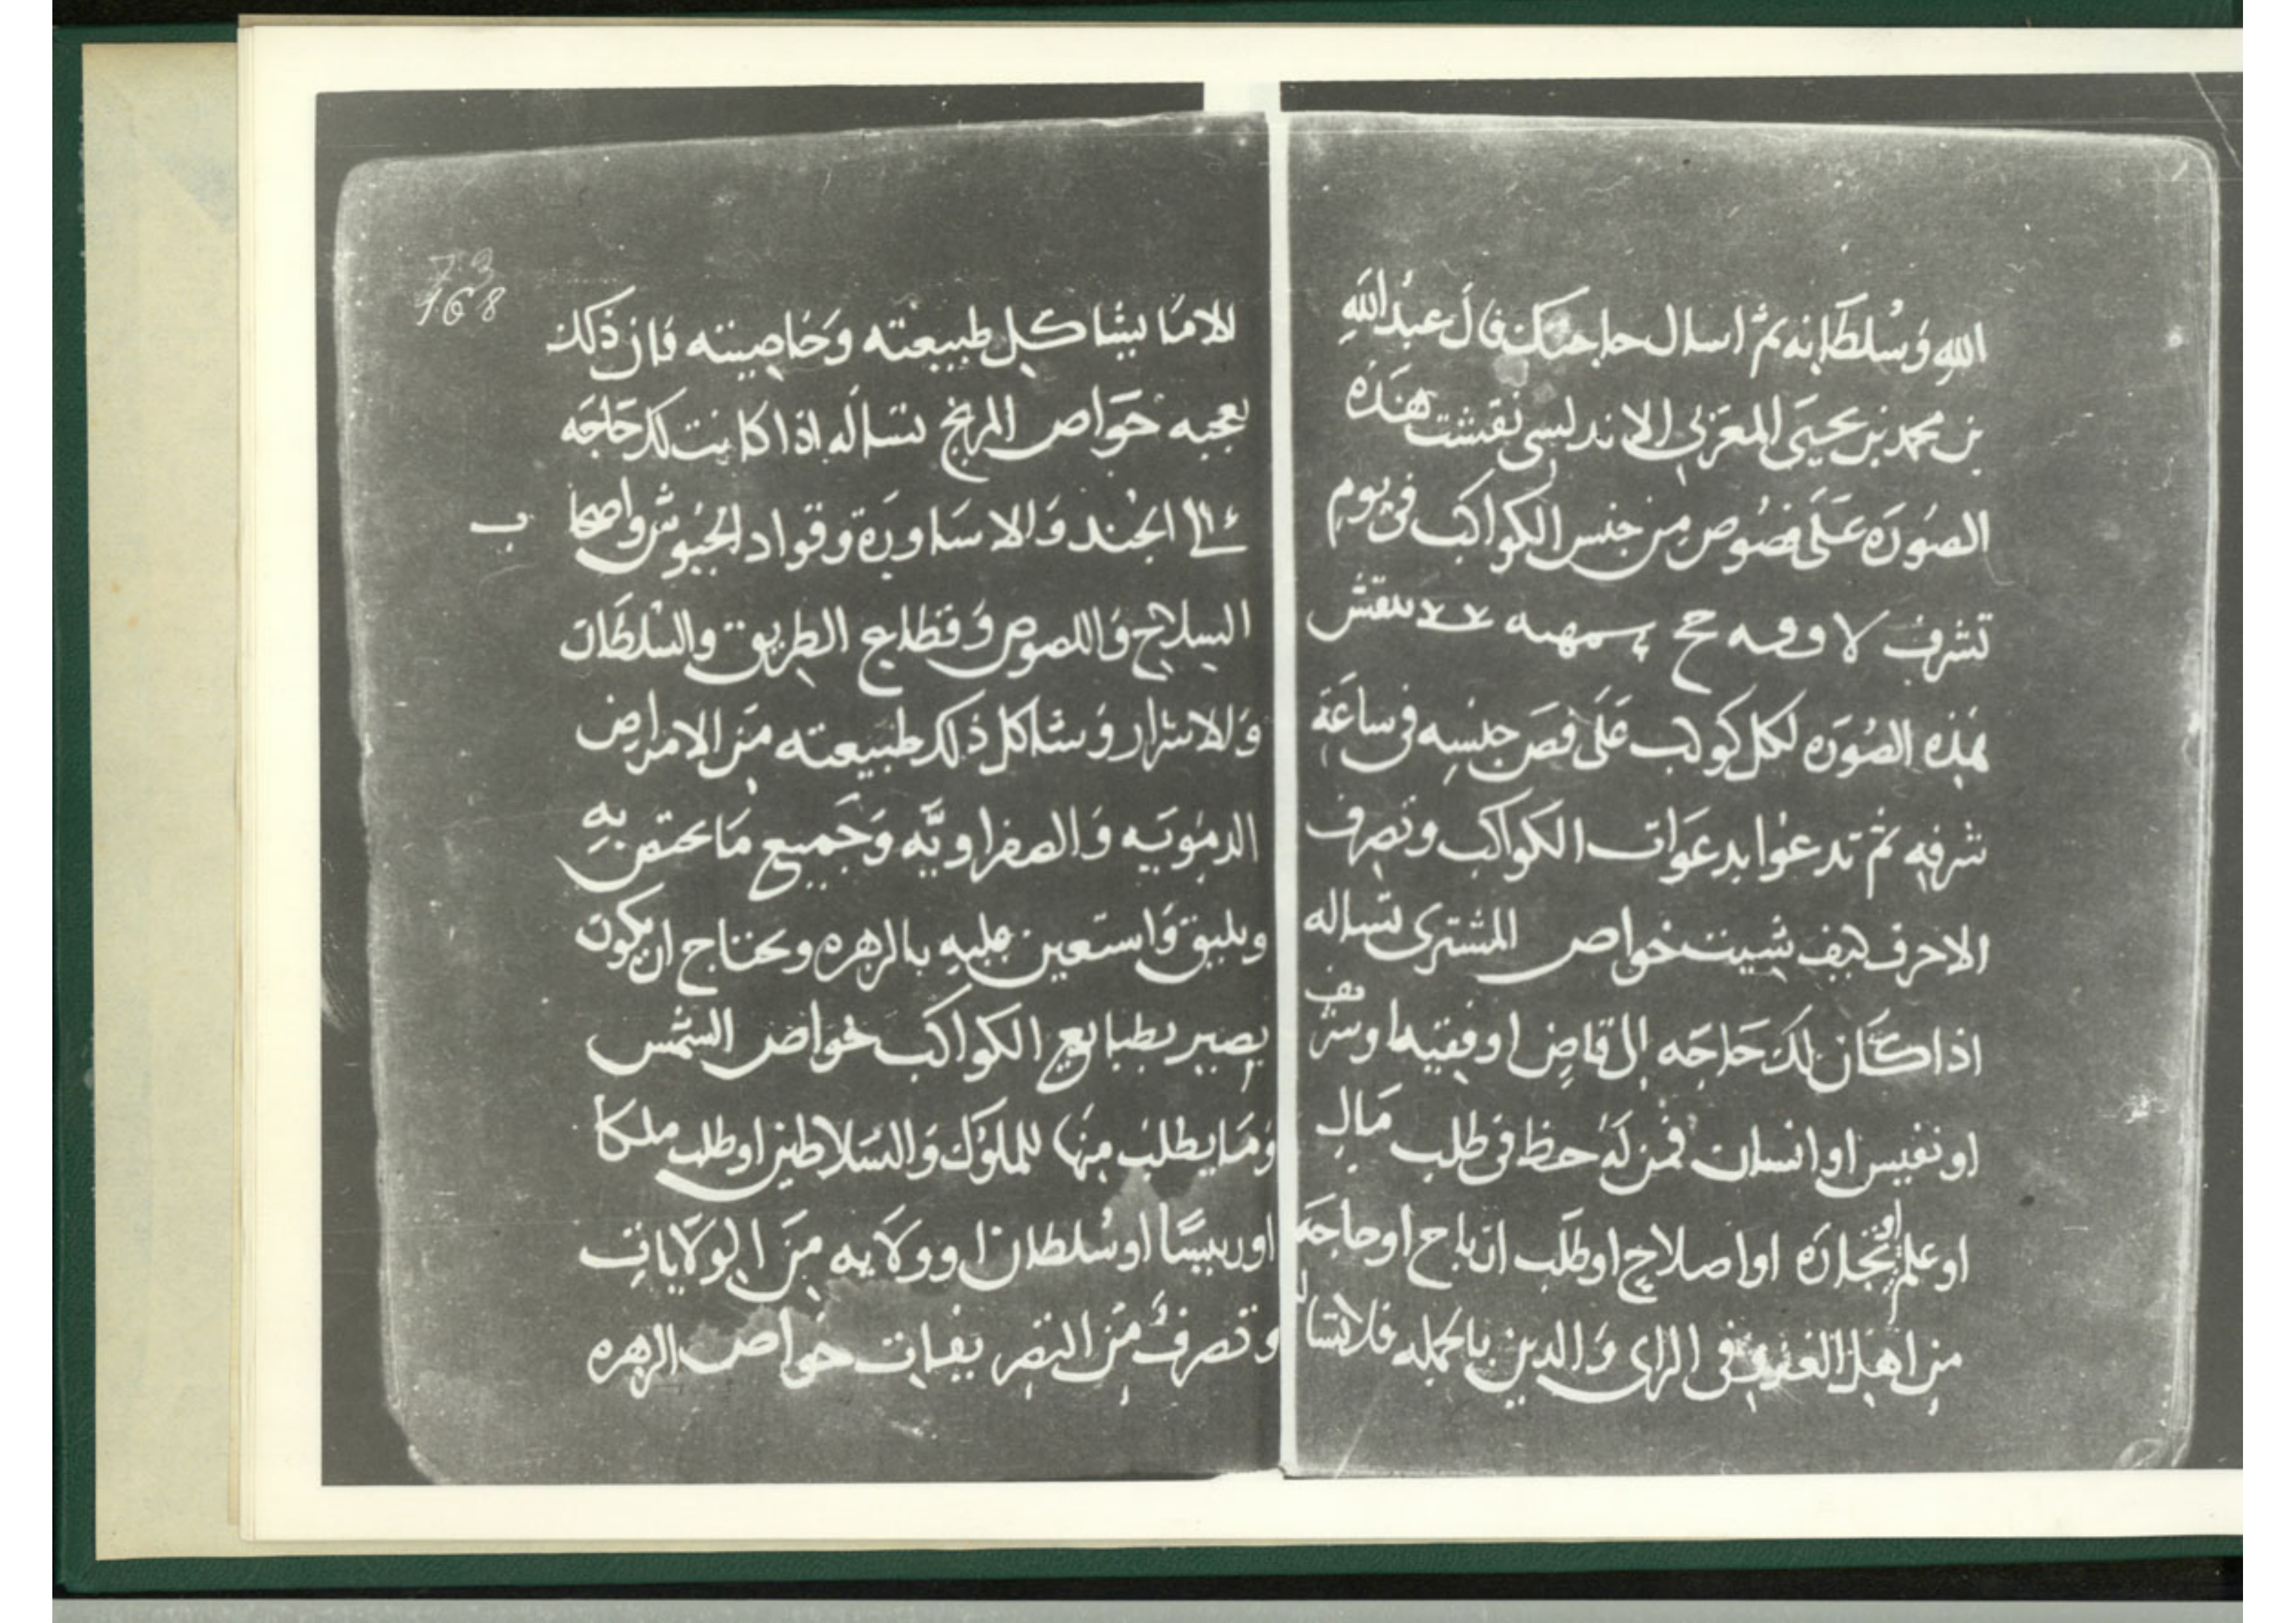 الله وَسُلطَانه ثم اسال حاجتك قال عبد الله
بن محمد بن يحيَى المغربي الاندلسي نقشت هذه
الصُورَه عَلَى فصُوص من جنس الكواكب فى يوم
تشرف لا وفـه حح ينقش
هذه الصُورَه لكل كوكب عَلَى فص جنسه فى ساعَة
شرفه ثم تدعُوا بدعَوات الكواكب وتصرف
الاحرف كيف شيت خواص المشترى تساله
اذا كان لك حَاجَه الى قاضٍ او فقيه او شريف
او نفيس او انسان فمن لَهُ حظ فى طلب مَال
او علم او تجارَه او اصلاح او طلَب ارباح او حاجَه
من اهل فى الراى وَالدين بالجمله فلا تساله
73
168
الا مَا يشاكل طبيعته وَخاصيته فان ذلك
يعجبه خَواص المريخ تساله اذا كانت لك حَاجَه
الى الجند وَالاسَاورَة وقواد الجيُوش واصحاب
السلاح وَاللصوص وَقطاع الطريق والسلطان
وَالاشرار وَشاكل ذلك طبيعته مَن الامراض
الدمويَه وَالصفراويَّه وَجَميع مَا يختص بهِ
ويليق وَاستَعين عليهِ بالزهره ويحتاج ان يكون
بصير بطبايع الكواكب خواص الشمس
وَمَا يطلب منها للملوك وَالسَلاطين او طلب ملكا
او رييسًا او سُلطان او ولَايه مَن الولَايات
وتصرفُ مَن التصريفات خَواص الزهره